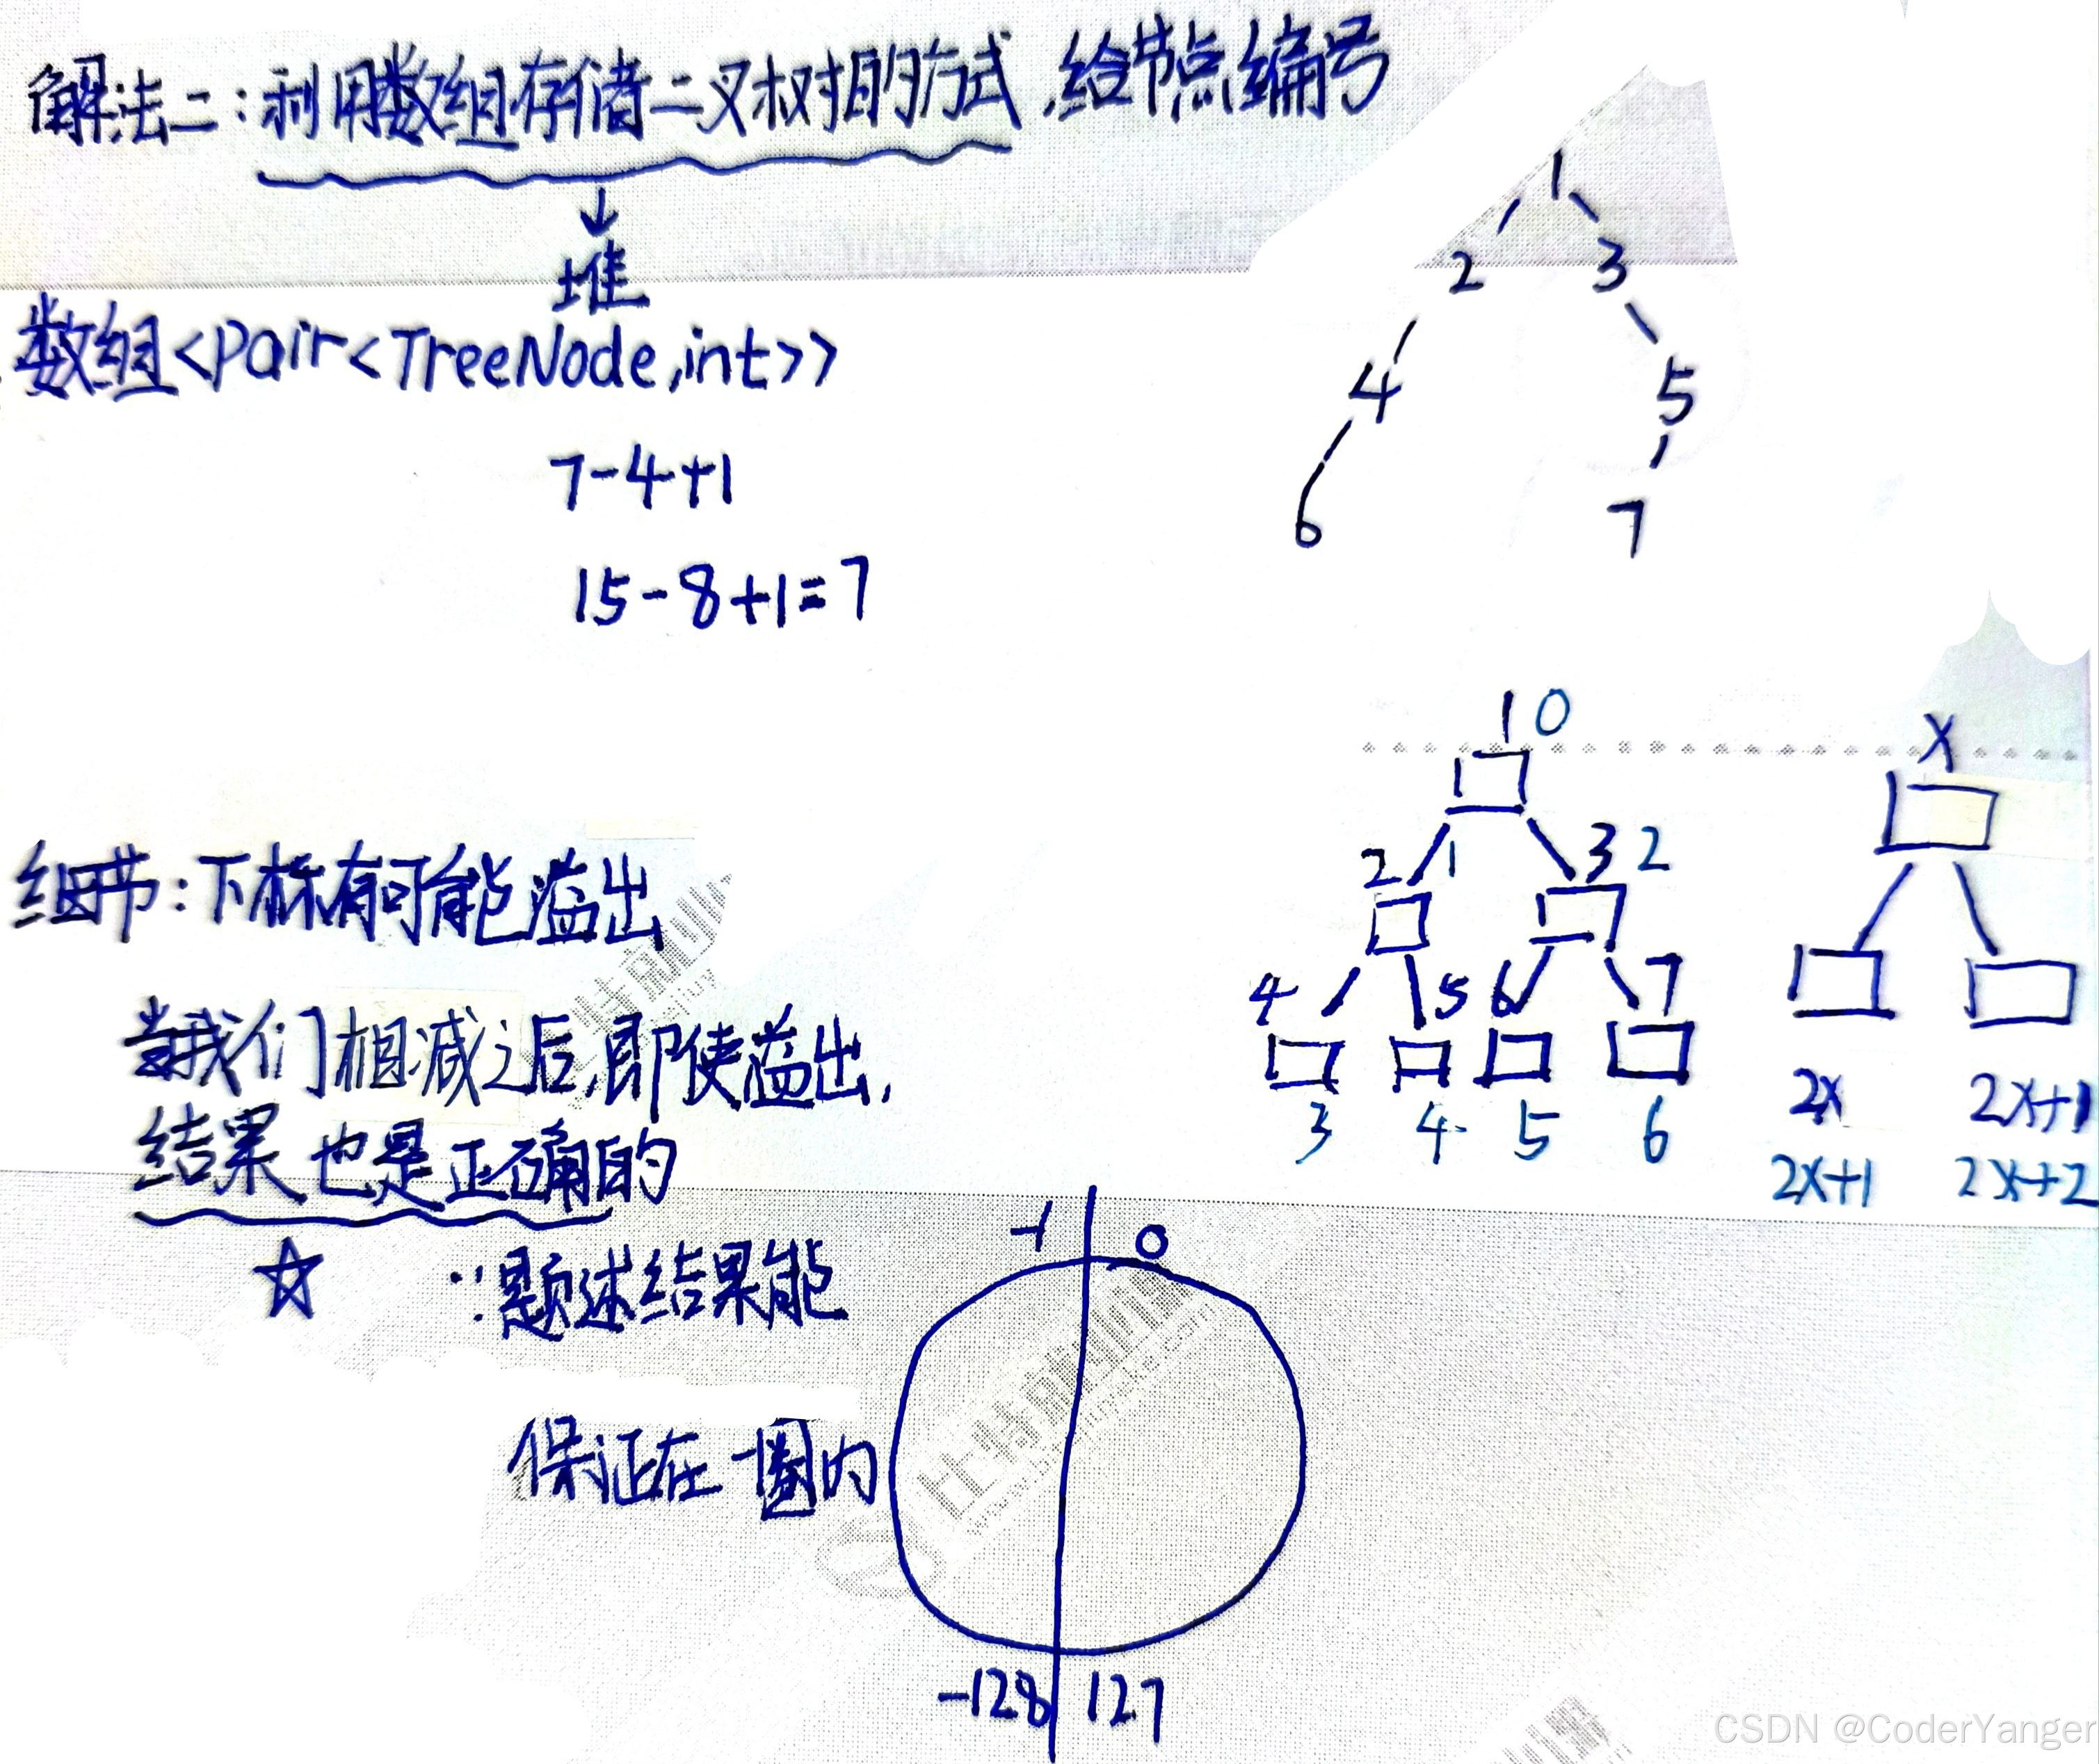 解法二:利用数组存储二叉树的方式,给节点编号
堆
数组<Pair<TreeNode,int>>
7-4+1
15-8+1=7
1
2 3
4 5
6 7
1 0
2 1 3 2
4 5 6 7
3 4 5 6
X
2X 2X+1
2X+1 2X+2
细节:下标有可能溢出
当我们相减之后,即使溢出,
结果也是正确的
☆ ∵题述结果能
保证在一圈内
-1 0
-128 127
比特就业
比特就业
CSDN @CoderYanger